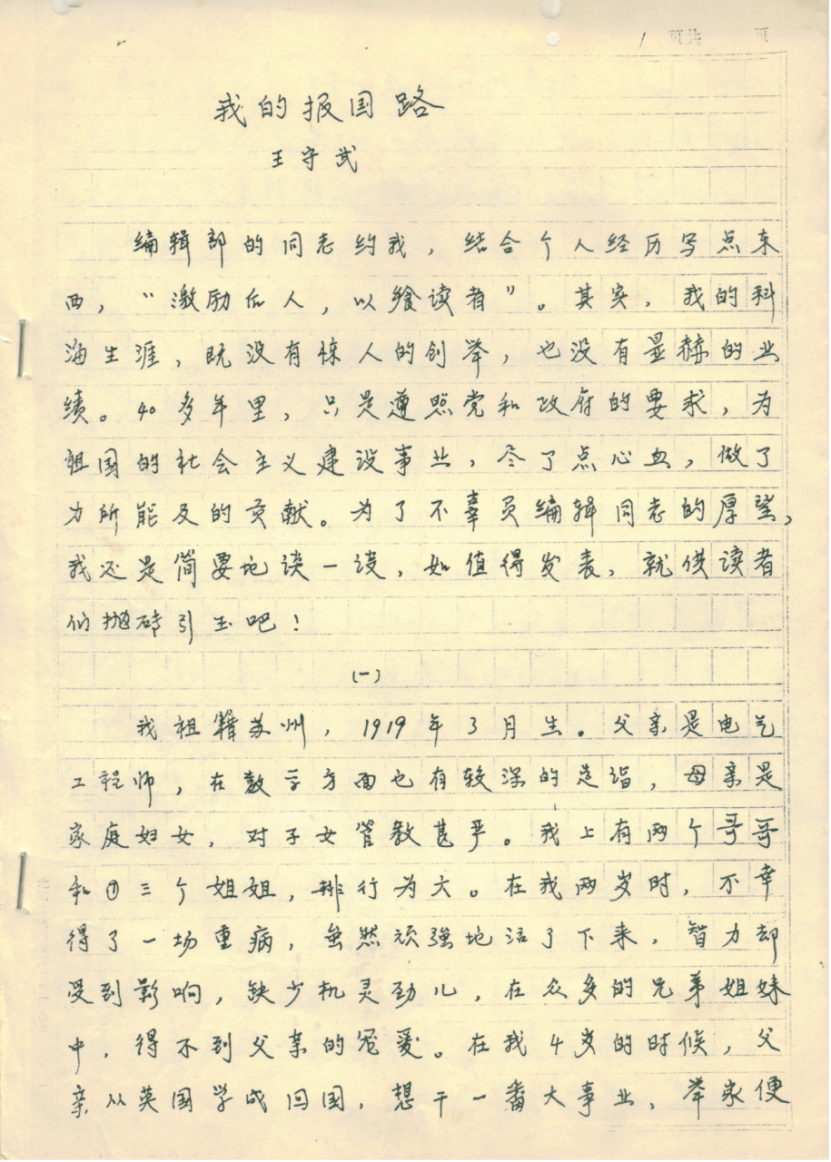 1 页共 页
我的报国路
王守武
编辑部的同志约我，结合个人经历写点东
西，“激励后人，以飨读者”。其实，我的科
海生涯，既没有惊人的创举，也没有显赫的业
绩。40多年里，只是遵照党和政府的要求，为
祖国的社会主义建设事业，尽了点心血，做了
力所能及的贡献。为了不辜负编辑同志的厚望，
我还是简要地谈一谈，如值得发表，就供读者
们抛砖引玉吧！
(一)
我祖籍苏州，1919年3月生。父亲是电气
工程师，在数学方面也有较深的造诣，母亲是
家庭妇女，对子女管教甚严。我上有两个哥哥
和三个姐姐，排行为六。在我两岁时，不幸
得了一场重病，虽然顽强地活了下来，智力却
受到影响，缺少机灵劲儿，在众多的兄弟姐妹
中，得不到父亲的宠爱。在我4岁的时候，父
亲从英国学成回国，想干一番大事业，举家便